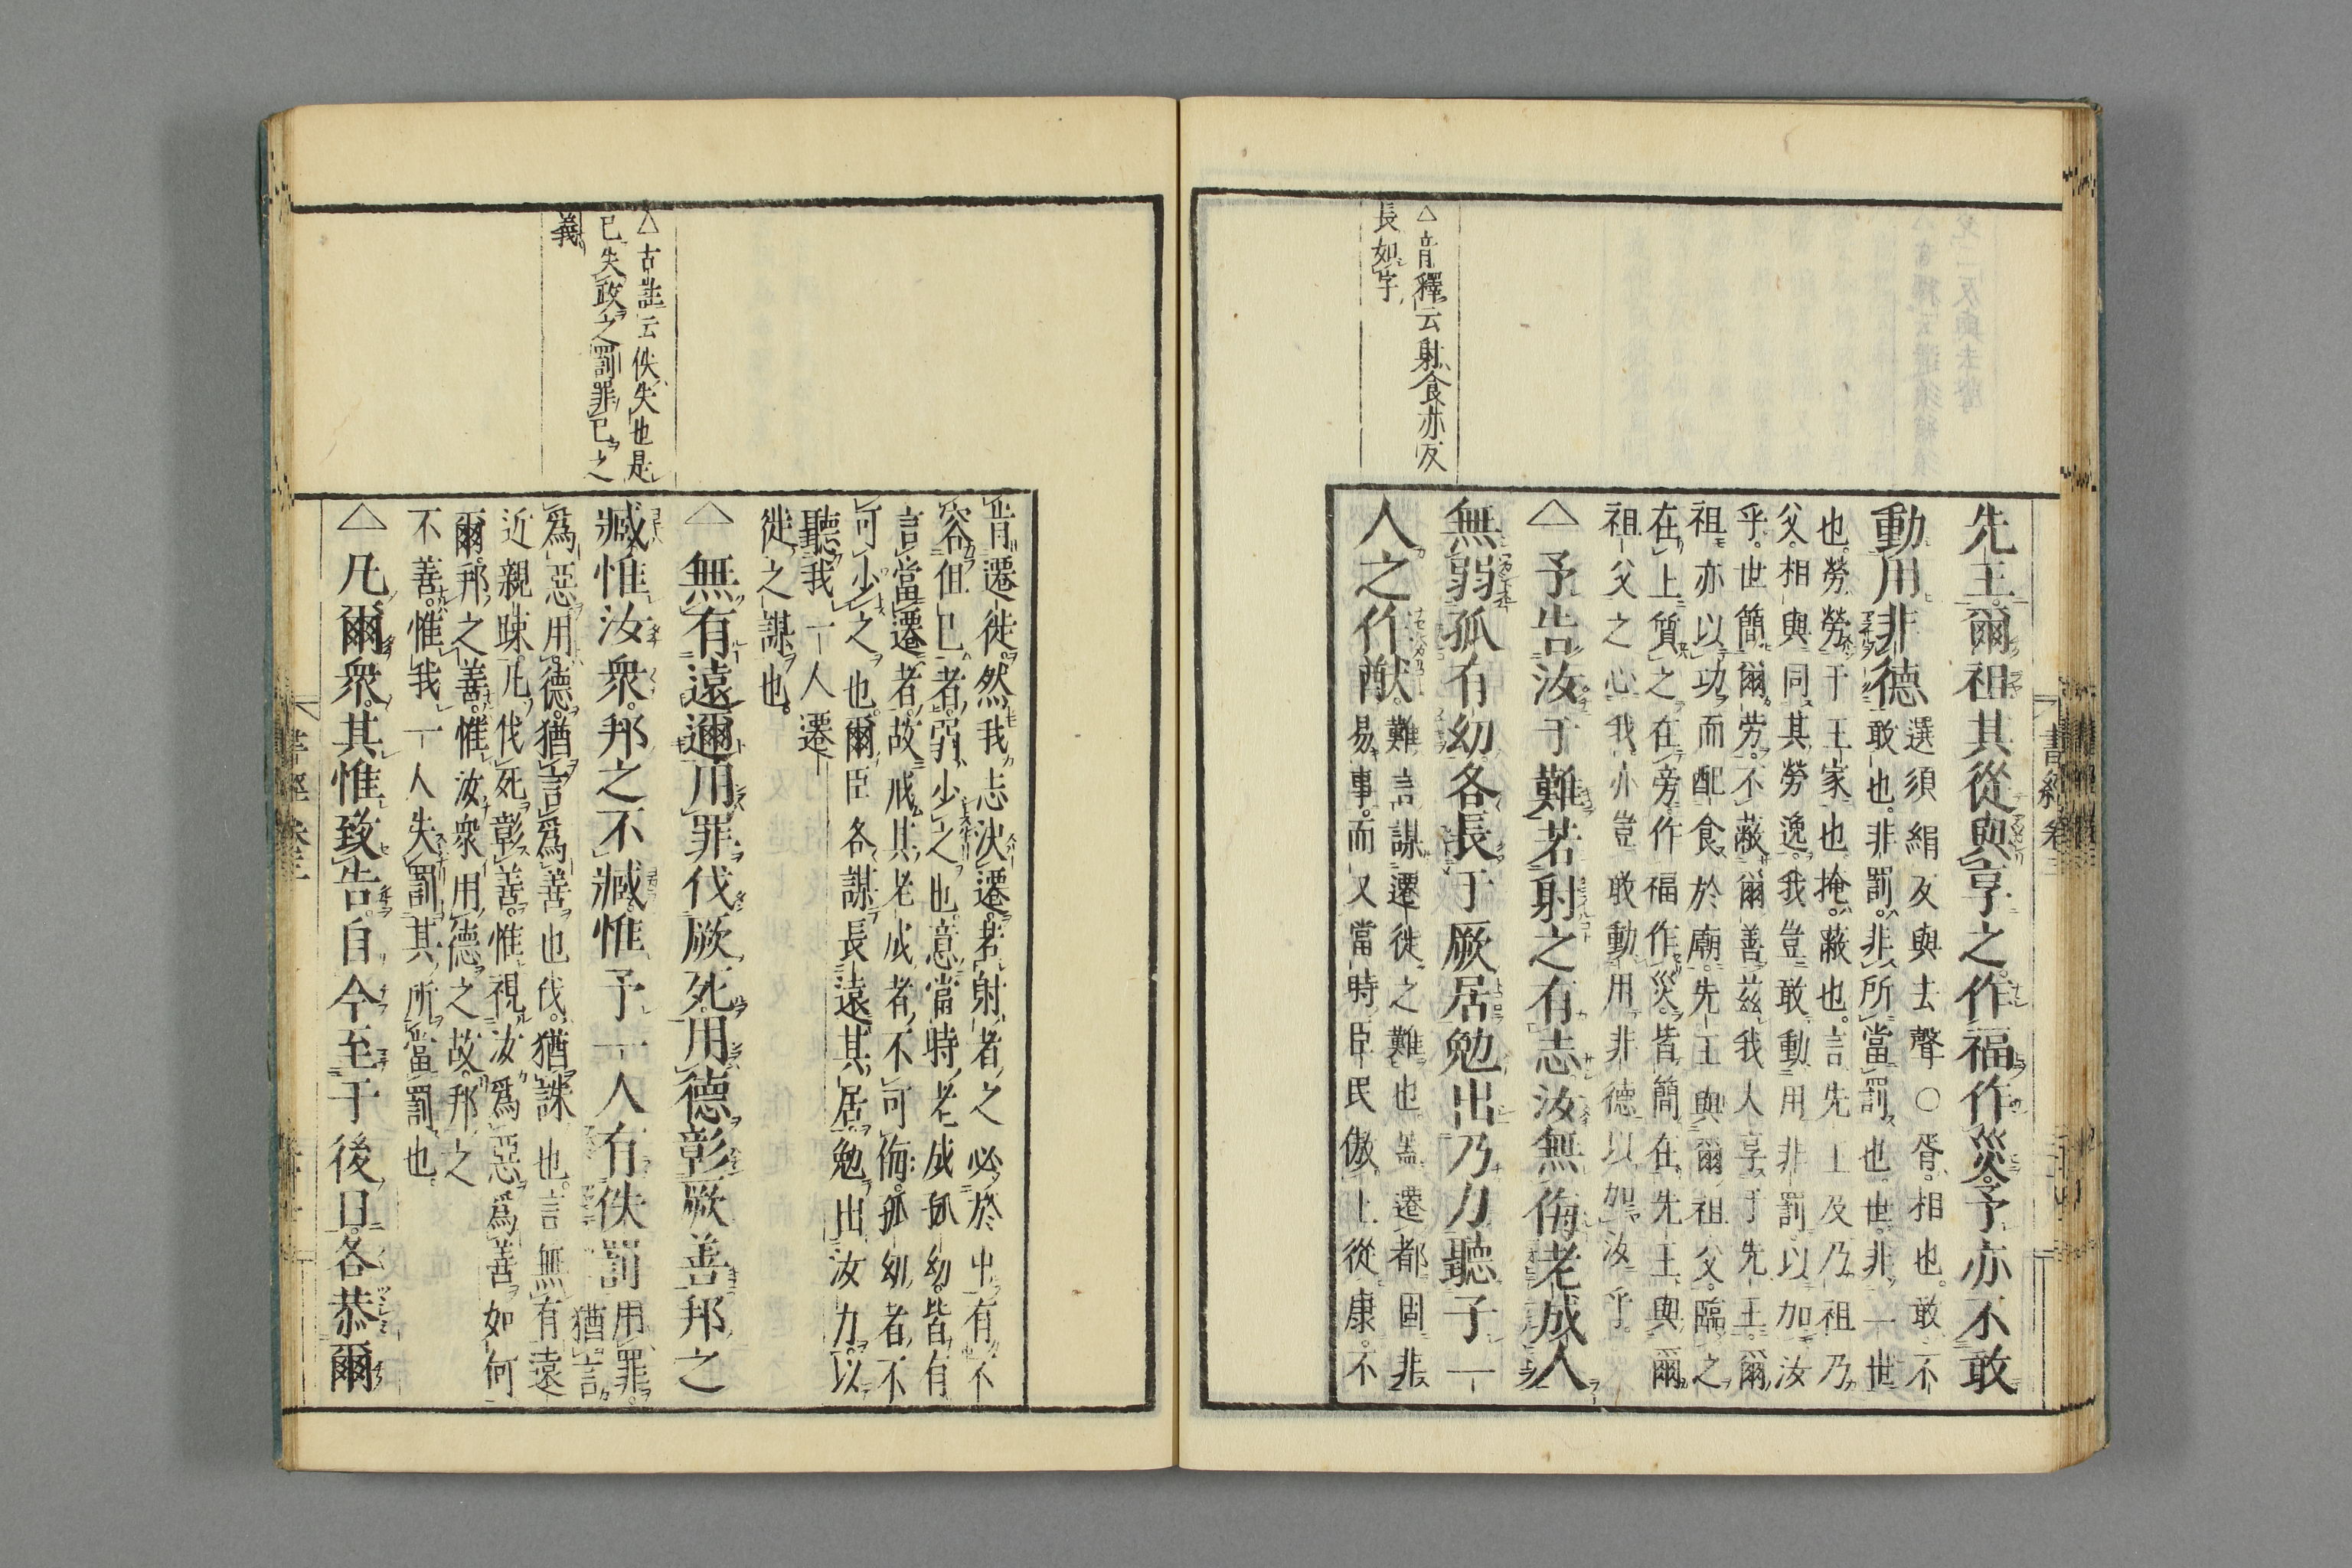 △音釋云射食亦反
長如字
先王爾祖其從與享之作福作災予亦不敢
動用非德
選須絹反與去聲○胥相也敢不
敢也非罰非所當罰也世非一世
也勞勞于王家也掩蔽也言先王及乃祖乃
父相與同其勞逸我豈敢動用非罰以加汝
乎世簡爾勞不蔽爾善茲我大享于先王爾
祖亦以功而配食於廟先王與爾祖父臨之
在上質之在旁作福作災皆簡在先王與爾
祖父之心我亦豈敢動用非德以加汝乎
△予告汝于難若射之有志汝無侮老成人
無弱孤有幼各長于厥居勉出乃力聽予一
人之作猷
難言謀遷徙之難也蓋遷都固非
易事而又當時臣民傲上從康不
△古註云佚失也是
已失政之罰罪已之
義
肯遷徙然我志決遷若射者之必於中有不
容但已者弱少之也意當時老成孤幼皆有
言當遷者故戒其老成者不可侮孤幼者不
可少之也爾臣各謀長遠其居勉出汝力以
聽我一人遷
徙之謀也
△無有遠邇用罪伐厥死用德彰厥善邦之
臧惟汝衆邦之不臧惟予一人有佚罰
用罪
猶言
爲惡用德猶言爲善也伐猶誅也言無有遠
近親疎凡伐死彰善惟視汝爲惡爲善如何
爾邦之善惟汝衆用德之故邦之
不善惟我一人失罰其所當罰也
△凡爾衆其惟致告自今至于後日各恭爾
書經卷三